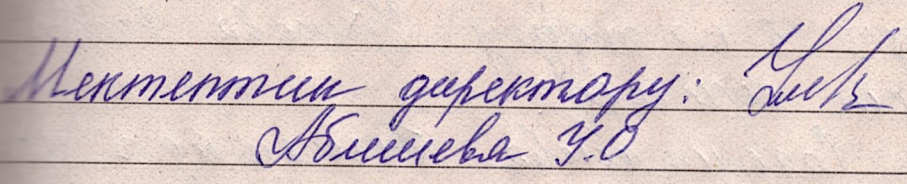 Мектептин директору:
Абишева У.О